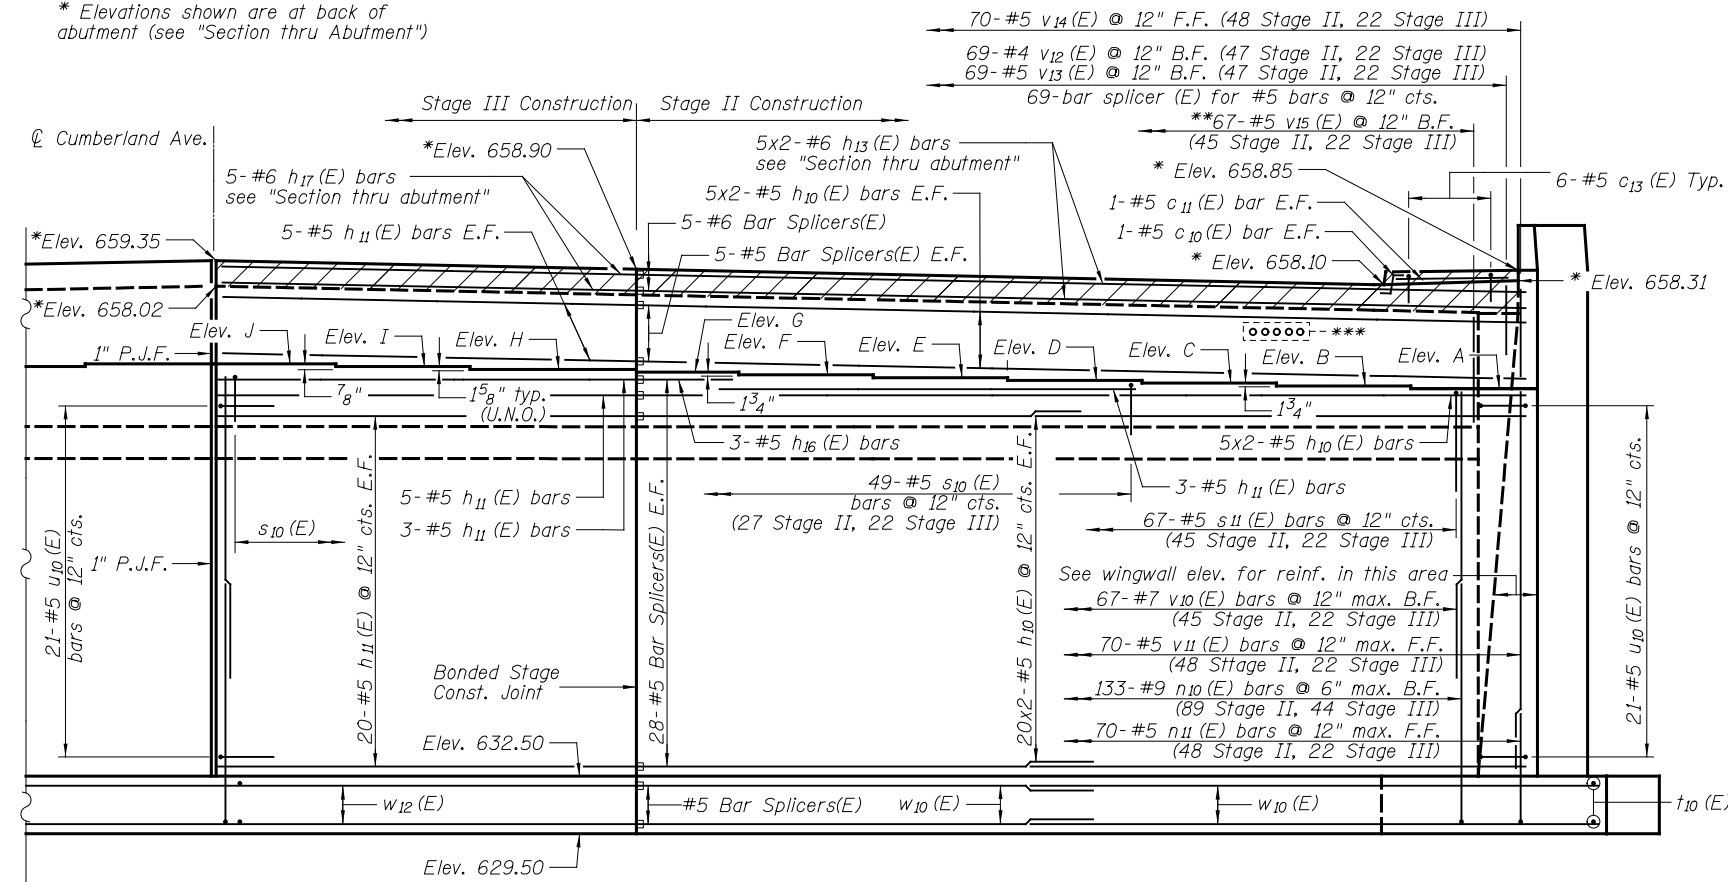 * Elevations shown are at back of
abutment (see "Section thru Abutment")
70-#5 v14(E) @ 12" F.F. (48 Stage II, 22 Stage III)
69-#4 v12(E) @ 12" B.F. (47 Stage II, 22 Stage III)
69-#5 v13(E) @ 12" B.F. (47 Stage II, 22 Stage III)
69-bar splicer (E) for #5 bars @ 12" cts.
**67-#5 v15(E) @ 12" B.F.
(45 Stage II, 22 Stage III)
Stage III Construction
Stage II Construction
℄ Cumberland Ave.
*Elev. 658.90
5x2-#6 h13(E) bars
see "Section thru abutment"
* Elev. 658.85
6-#5 c13(E) Typ.
5-#6 h17(E) bars
see "Section thru abutment"
5x2-#5 h10(E) bars E.F.
1-#5 c11(E) bar E.F.
5-#6 Bar Splicers(E)
*Elev. 659.35
5-#5 h11(E) bars E.F.
1-#5 c10(E) bar E.F.
5-#5 Bar Splicers(E) E.F.
* Elev. 658.10
* Elev. 658.31
*Elev. 658.02
Elev. J
Elev. I
Elev. H
Elev. G
Elev. F
Elev. E
Elev. D
Elev. C
Elev. B
Elev. A
***
1" P.J.F.
7/8"
1 5/8" typ.
(U.N.O.)
1 3/4"
1 3/4"
3-#5 h16(E) bars
5x2-#5 h10(E) bars
5-#5 h11(E) bars
49-#5 s10(E)
bars @ 12" cts.
(27 Stage II, 22 Stage III)
3-#5 h11(E) bars
3-#5 h11(E) bars
s10(E)
67-#5 s11(E) bars @ 12" cts.
(45 Stage II, 22 Stage III)
1" P.J.F.
See wingwall elev. for reinf. in this area
67-#7 v10(E) bars @ 12" max. B.F.
(45 Stage II, 22 Stage III)
70-#5 v11(E) bars @ 12" max. F.F.
(48 Sttage II, 22 Stage III)
133-#9 n10(E) bars @ 6" max. B.F.
(89 Stage II, 44 Stage III)
70-#5 n11(E) bars @ 12" max. F.F.
(48 Stage II, 22 Stage III)
21-#5 u10(E)
bars @ 12" cts.
20-#5 h11(E) @ 12" cts. E.F.
28-#5 Bar Splicers(E) E.F.
20x2-#5 h10(E) @ 12" cts. E.F.
21-#5 u10(E) bars @ 12" cts.
Bonded Stage
Const. Joint
Elev. 632.50
w12(E)
#5 Bar Splicers(E)
w10(E)
w10(E)
t10(E)
Elev. 629.50